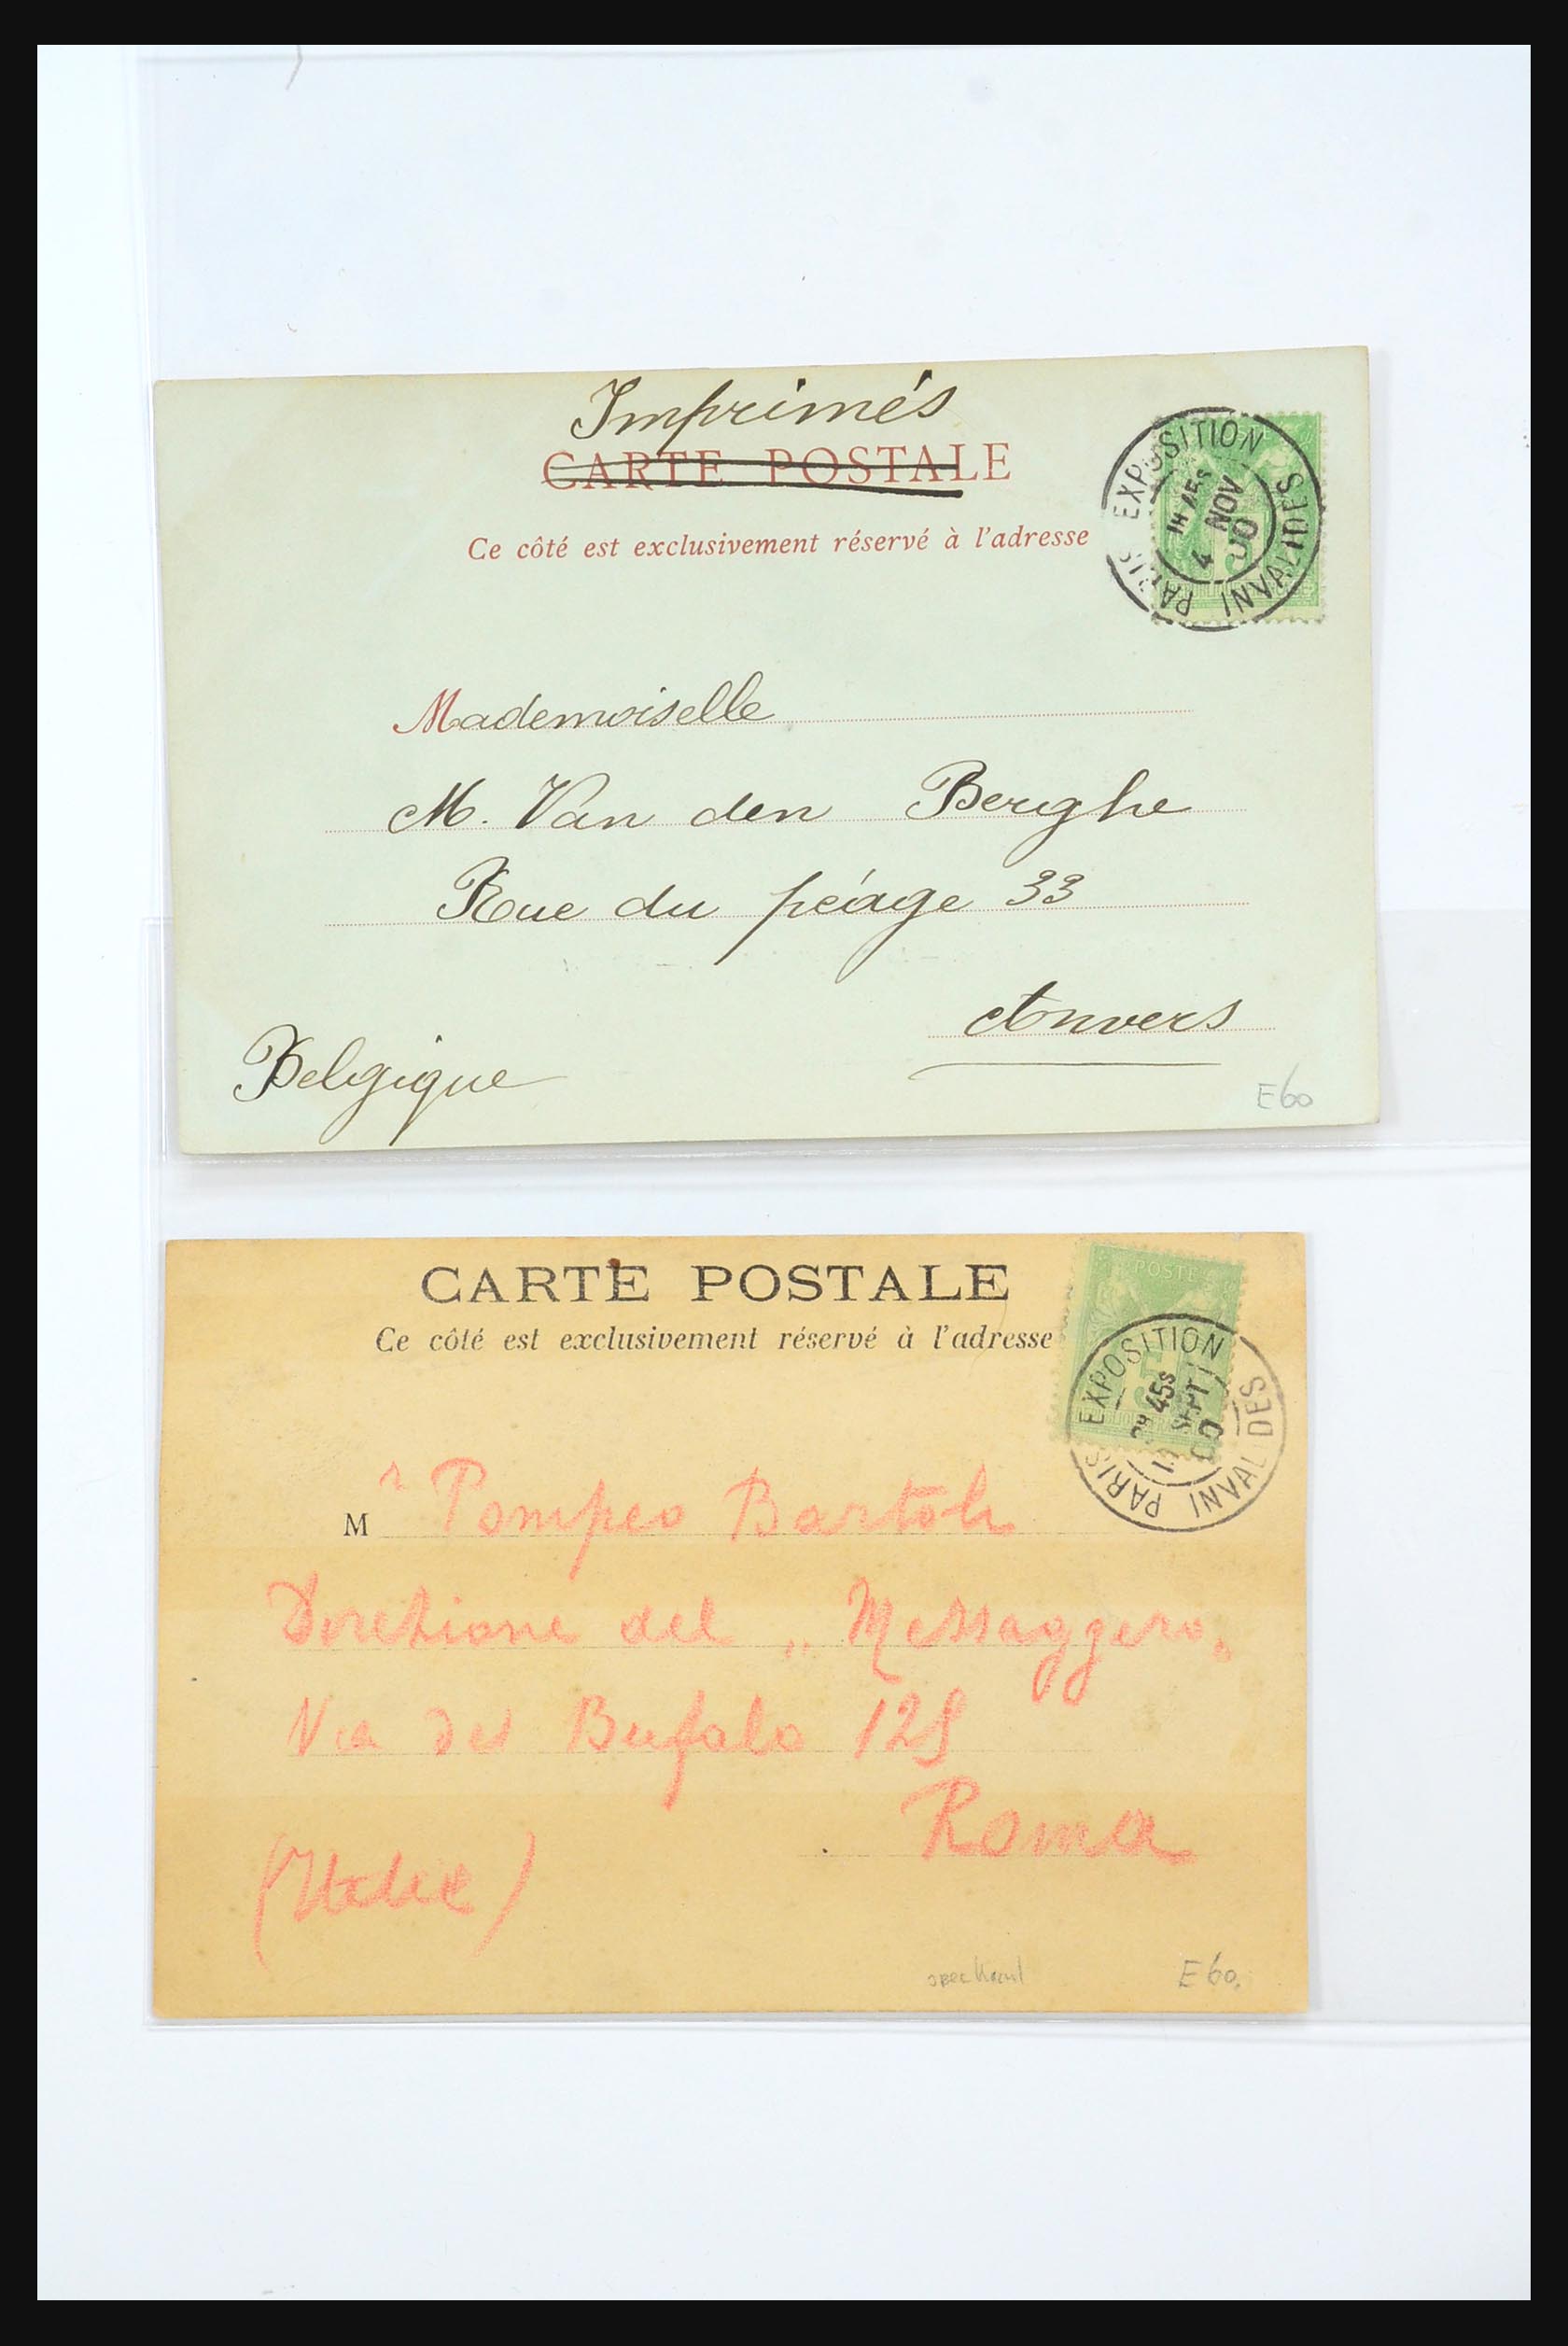 Imprimés
CARTE POSTALE
Ce côté est exclusivement réservé à l'adresse
PARIS EXPOSITION
INVALIDES
4 NOV
00
5
Mademoiselle
M. Van den Berghe
Rue du péage 33
Anvers
Belgique
E60
CARTE POSTALE
Ce côté est exclusivement réservé à l'adresse
POSTES
5
PARIS EXPOSITION
INVALIDES
45S
SEPT
00
Mr Pompeo Bartoli
Direzione del „Messaggero„
Via del Bufalo 125
Roma
(Italie)
E60.